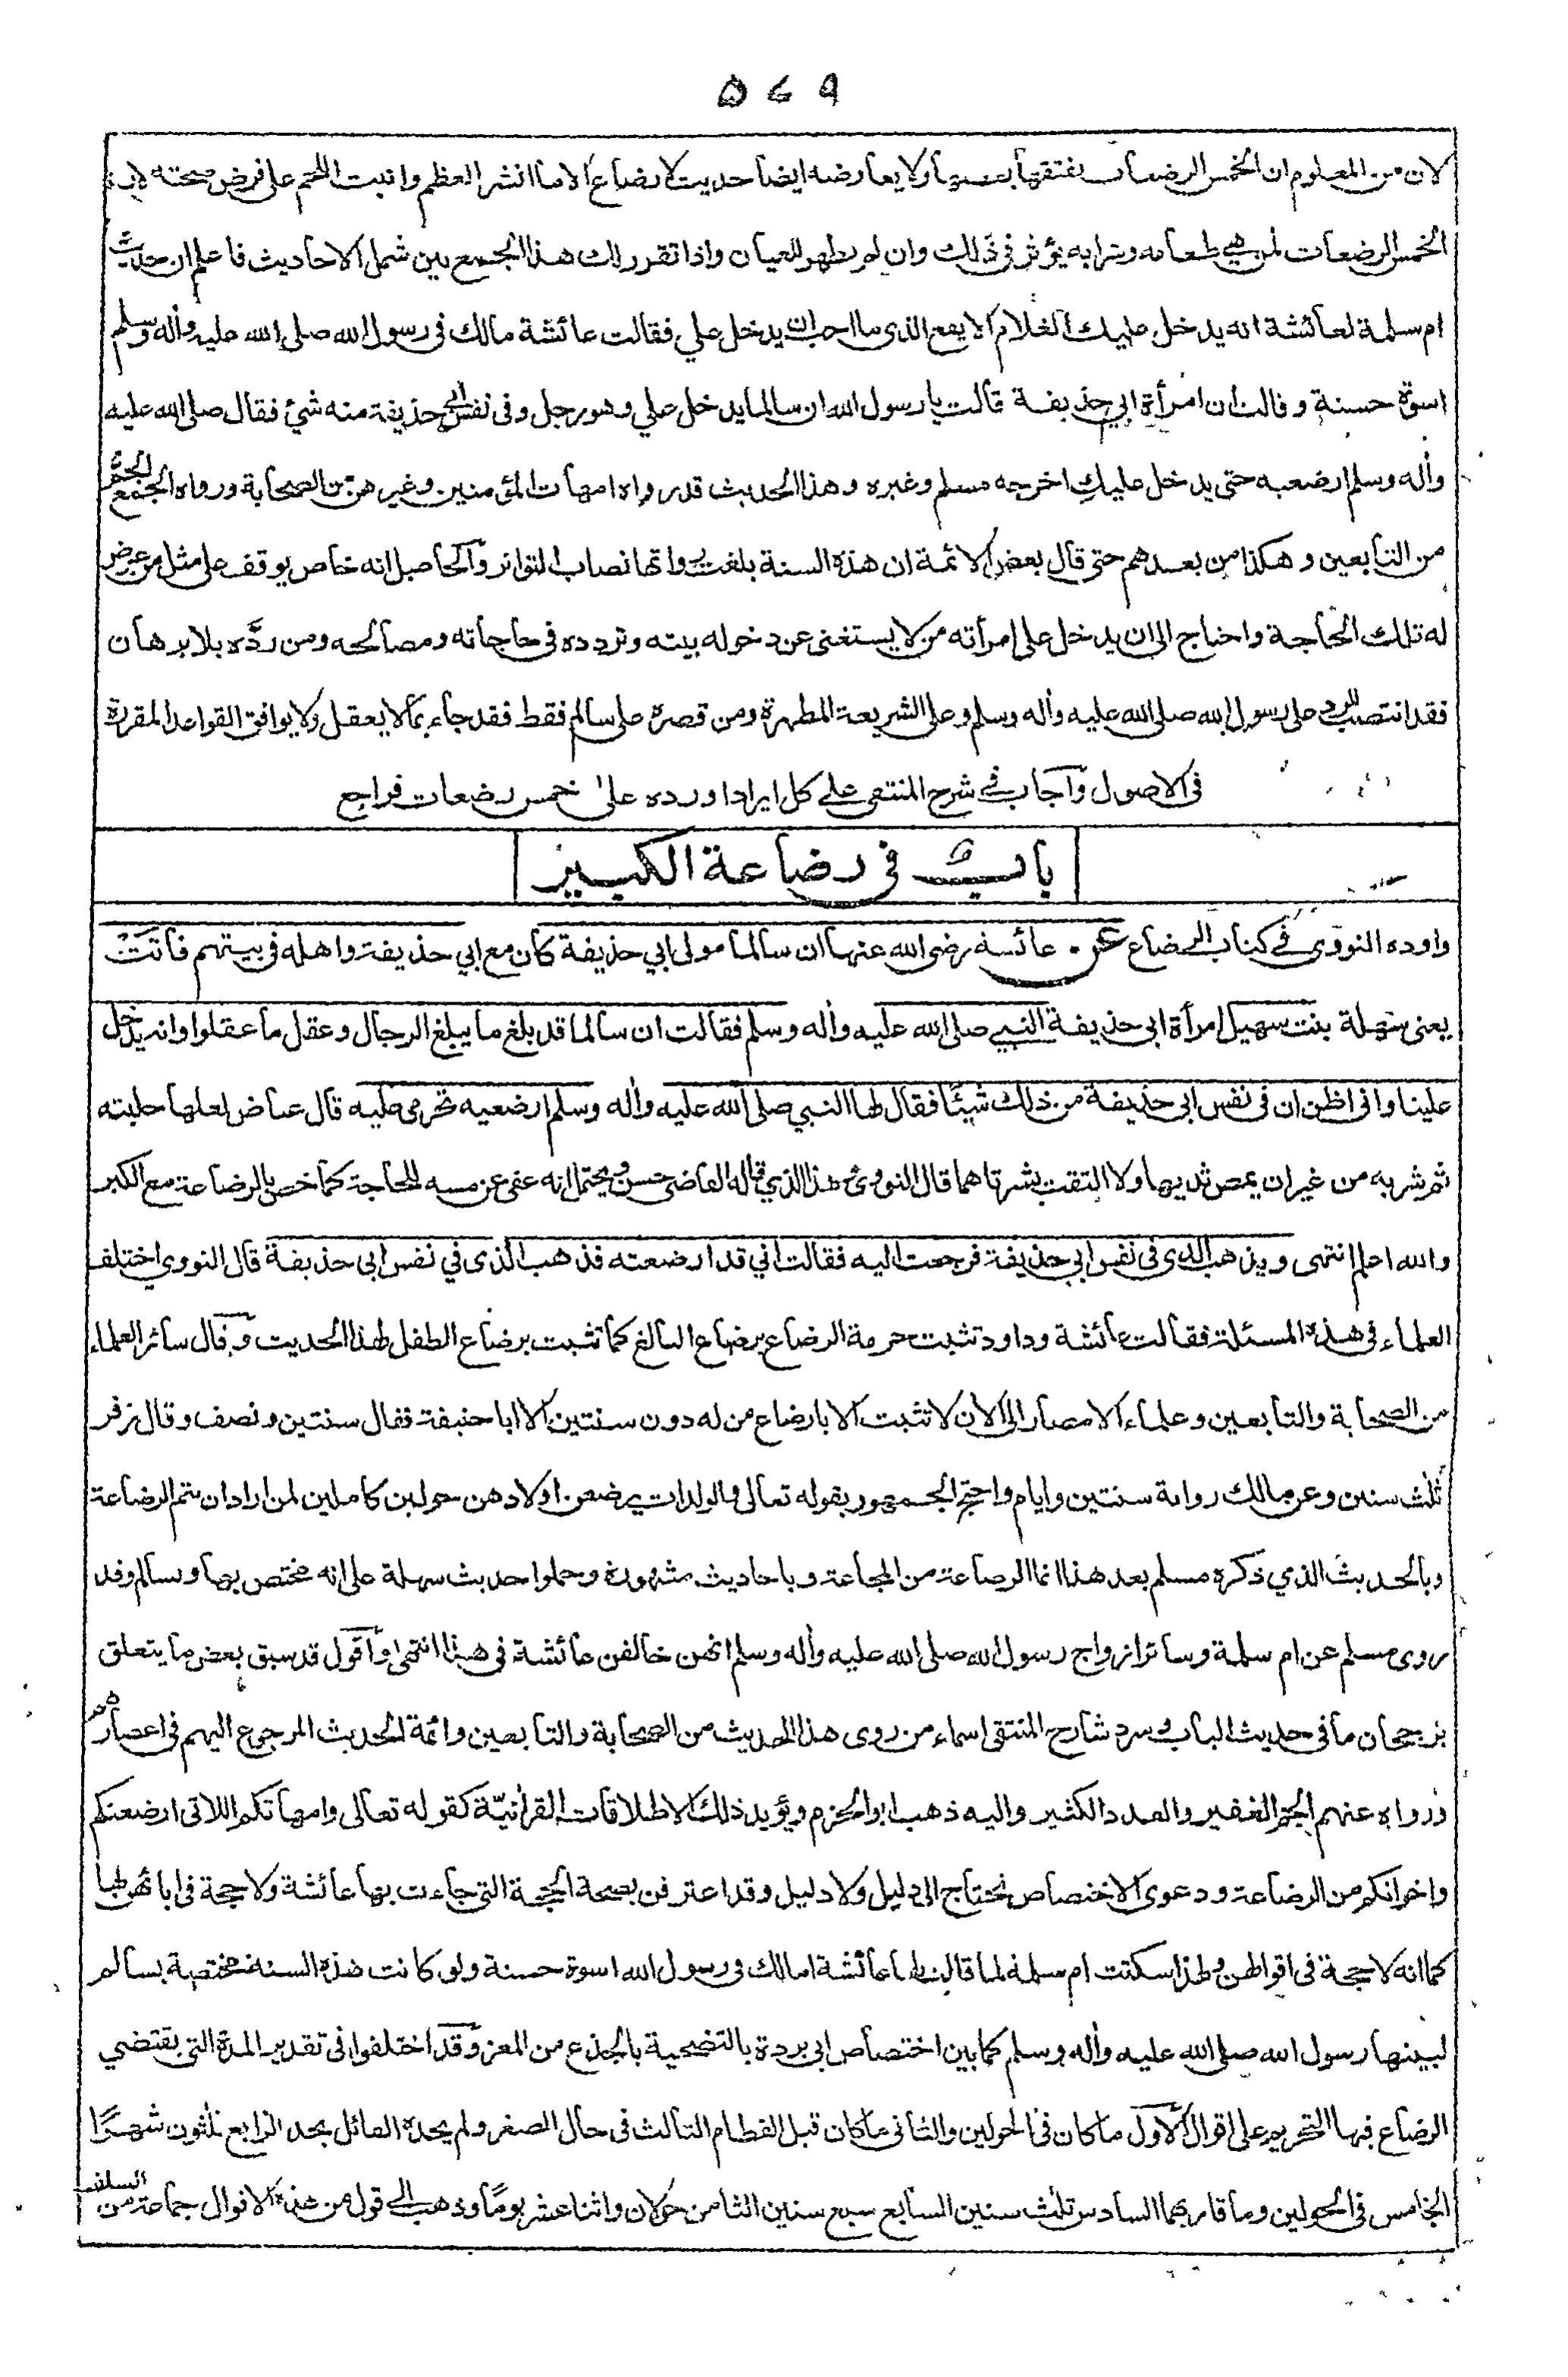 ٥٤٩
لان من المعلوم ان الخمس الرضعات يفتقها بعضها ولا يعارضه ايضا حديث لا رضاع الا ما انشر العظم وانبت اللحم على فرض صحته لان
الخمس الرضعات لمن هي طعامه وشرابه يؤثر في ذلك وان لم يظهر للعيان واذا تقرر لك هذا الجمع بين شمل الاحاديث فاعلم ان حديث
ام سلمة لعائشة انه يدخل عليك الغلام الايفع الذي ما احب ان يدخل علي فقالت عائشة مالك في رسول الله صلى الله عليه واله وسلم
اسوة حسنة وقالت ان امرأة ابي حذيفة قالت يا رسول الله ان سالما يدخل علي وهو رجل وفي نفس ابي حذيفة منه شئ فقال صلى الله عليه
واله وسلم ارضعيه حتى يدخل عليك اخرجه مسلم وغيره وهذا الحديث قد رواه امهات المؤمنين وغيرهن من الصحابة ورواه الجمع الجم
من التابعين وهكذا من بعدهم حتى قال بعض الائمة ان هذه السنة بلغت رواتها نصاب التواتر والحاصل انه خاص يوقف على مثل من عرض
له تلك الحاجة واحتاج الى ان يدخل على امرأته من لا يستغني عن دخوله بيته وتردده في حاجاته ومصالحه ومن ردّه بلا برهان
فقد انتصب للرد على رسول الله صلى الله عليه واله وسلم وعلى الشريعة المطهرة ومن قصره على سالم فقط فقد جاء بما لا يعقل ولا يوافق القواعد المقررة
في الاصول وآجاب في شرح المنتقى على كل ايراد اورده على خمس رضعات فراجع
باب في رضاعة الكبير
واورده النووي في كتاب الرضاع عن عائشة رضي الله عنها ان سالما مولى ابي حذيفة كان مع ابي حذيفة واهله في بيتهم فأتت
يعني سهلة بنت سهيل امرأة ابي حذيفة النبي صلى الله عليه واله وسلم فقالت ان سالما قد بلغ ما يبلغ الرجال وعقل ما عقلوا وانه يدخل
علينا واني اظن ان في نفس ابي حذيفة من ذلك شيئًا فقال لها النبي صلى الله عليه واله وسلم ارضعيه تحرمي عليه قال عياض لعلها حلبته
ثم شربه من غير ان يمص ثديها ولا التقت بشرتاهما قال النووي هذا الذي قاله القاضي حسن ويحتمل انه عفي عن مسه للحاجة كما خص بالرضاعة مع الكبر
والله اعلم انتهى ويذهب الذي في نفس ابي حذيفة فرجعت اليه فقالت اني قد ارضعته فذهب الذي في نفس ابي حذيفة قال النووي اختلف
العلماء في هذه المسئلة فقالت عائشة وداود تثبت حرمة الرضاع برضاع البالغ كما تثبت برضاع الطفل لهذا الحديث وقال سائر العلماء
من الصحابة والتابعين وعلماء الامصار الى الآن لا تثبت الا بارضاع من له دون سنتين الا ابا حنيفة فقال سنتين ونصف وقال زفر
ثلث سنين وعن مالك رواية سنتين وايام واحتج الجمهور بقوله تعالى والوالدات يرضعن اولادهن حولين كاملين لمن اراد ان يتم الرضاعة
وبالحديث الذي ذكره مسلم بعد هذا انما الرضاعة من المجاعة وباحاديث مشهورة وحملوا حديث سهلة على انه مختص بها وبسالم وقد
روى مسلم عن ام سلمة وسائر ازواج رسول الله صلى الله عليه واله وسلم انهن خالفن عائشة في هذا انتهى وآقول قد سبق بعض ما يتعلق
بترجحان ما في حديث الباب وسرد شارح المنتقى اسماء من روى هذا الحديث من الصحابة والتابعين وائمة الحديث المرجوع اليهم في اعصارهم
ورواه عنهم الجم الغفير والعدد الكثير واليه ذهب ابن الحزم ويؤيد ذلك الاطلاقات القرأنيّة كقوله تعالى وامهاتكم اللاتي ارضعنكم
واخواتكم من الرضاعة ودعوى الاختصاص تحتاج الى دليل ولا دليل وقد اعترفن بصحة الحجة التي جاءت بها عائشة ولا حجة في ابائهن لها
كما انه لا حجة في اقوالهن ولهذا سكتت ام سلمة لما قالت لها عائشة اما لك في رسول الله اسوة حسنة ولو كانت هذه السنة مختصة بسالم
لبينها رسول الله صلى الله عليه واله وسلم كما بين اختصاص ابي بردة بالتضحية بالجذع من المعز وقد اختلفوا في تقدير المدة التي يقتضي
الرضاع فيها التحريم على اقوال الآول ما كان في الحولين والثاني ما كان قبل الفطام الثالث في حال الصغر ولم يحده القائل بحد الرابع ثلثون شهرًا
الخامس في الحولين وما قاربهما السادس ثلث سنين السابع سبع سنين الثامن حولان واثنا عشر يومًا وذهب الى قول من هذه الاقوال جماعة من السلف